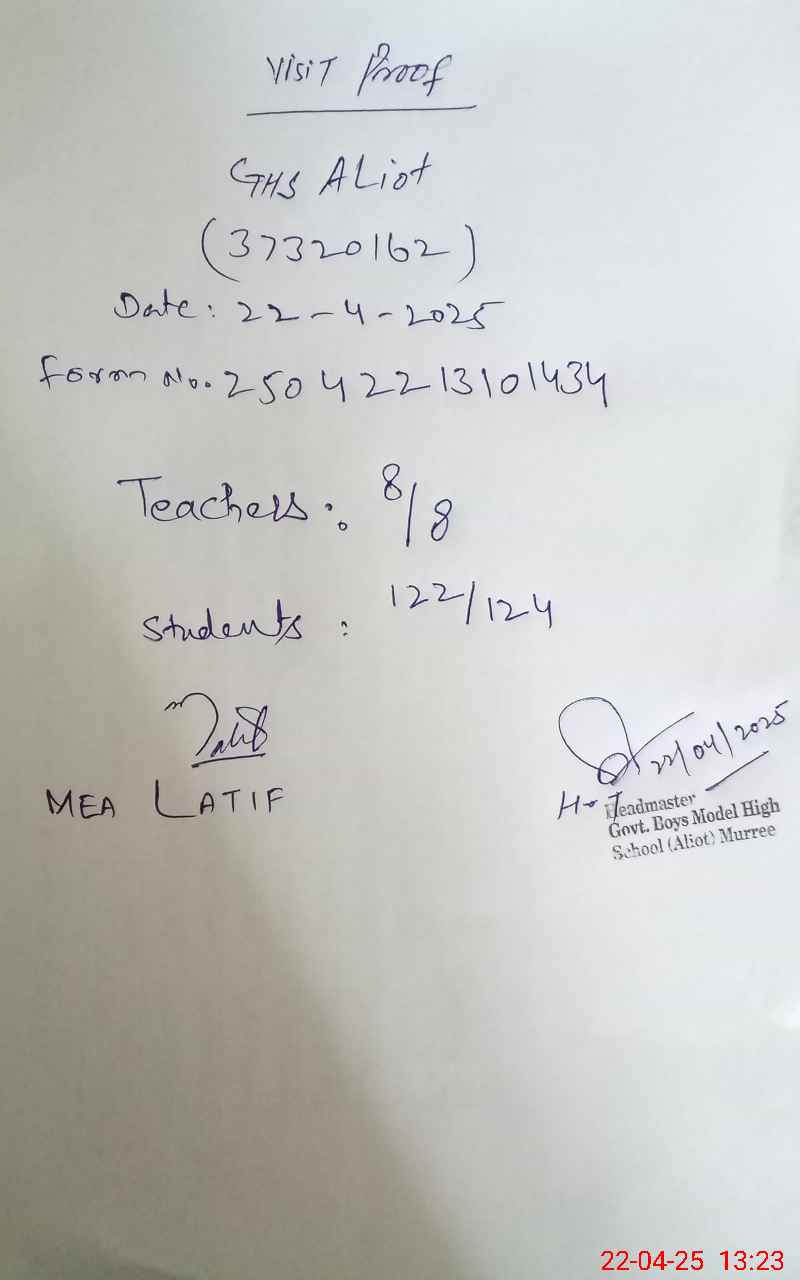 Visit Proof
GHS ALiot
(37320162)
Date: 22-4-2025
Form No. 25042213101434
Teachers: 8/8
Students: 122/124
22/04/2025
MEA LATIF
H.T
Headmaster
Govt. Boys Model High
School (Aliot) Murree
22-04-25 13:23